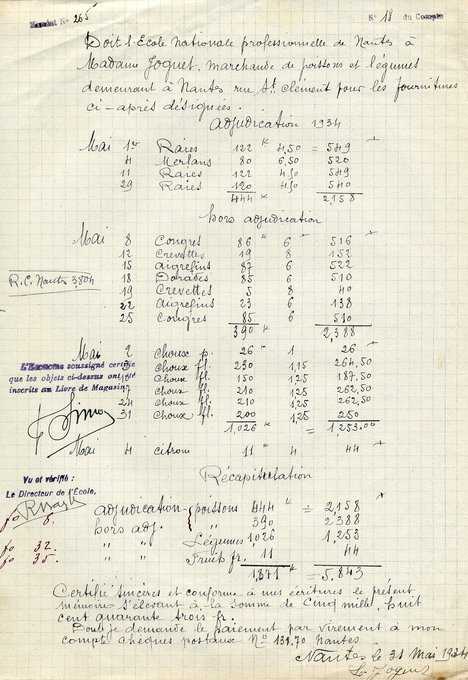 Mandat No 265
No 18 du Compte
Doit l'Ecole Nationale professionnelle de Nantes à
Madame Joguet, marchande de poissons et légumes
demeurant à Nantes rue St Clément pour les fournitures
ci-après désignées.
Adjudication 1934
Mai 1er Raies 122 k 4,50 = 549
4 Merlans 80 6,50 520
11 Raies 122 4,50 549
29 Raies 120 4,50 540
444 k 2,158
hors adjudication
Mai 8 Congres 86 k 6 516
12 Crevettes 19 8 152
15 aigrefins 87 6 522
R.C. Nantes 3,804
18 Dorades 85 6 510
19 Crevettes 5 8 40
22 Aigrefins 23 6 138
25 Congres 85 6 510
390 k 2,388
Mai 2 Choux p. 26 k 1 26
L'Econome soussigné certifie
que les objets ci-dessus ont été
inscrits au Livre de Magasin.
Choux fl. 230 1,15 264,50
Choux fl. 150 1,25 187,50
Choux fl. 210 1,25 262,50
24 Choux fl. 210 1,25 262,50
31 Choux fl. 200 1,25 250
1,026 k = 1253.00
Mai 4 citrons 11 k 4 44
Récapitulation
Vu et vérifié :
Le Directeur de l'École,
adjudication - poissons 444 k = 2,158
hors adj. " 390 2388
" " Légumes 1026 1,253
" " Fruits fr. 11 44
1,871 k = 5,843
fo 6.
fo 32.
fo 35.
Certifié sincères et conforme à mes écritures le présent
mémoire s'élevant à la somme de Cinq mille, huit
cent quarante trois fr.
Dont je demande le paiement par virement à mon
compte chèques postaux No 131.70 Nantes
Nantes le 31 Mai 1934